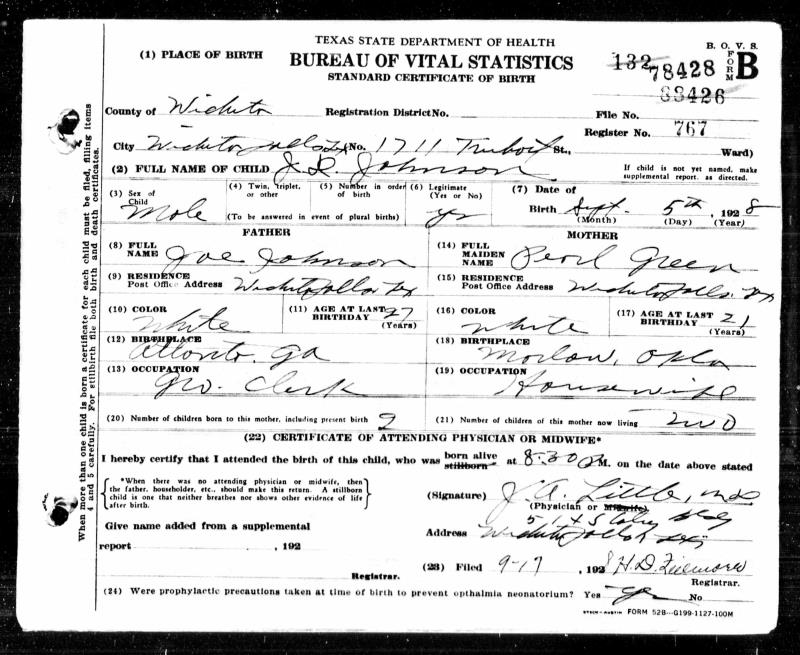 TEXAS STATE DEPARTMENT OF HEALTH
B. O. V. S.
(1) PLACE OF BIRTH
BUREAU OF VITAL STATISTICS
132 78428
FORM B
STANDARD CERTIFICATE OF BIRTH
33426
County of Wichita Registration District No. File No.
Register No. 767
City Wichita Falls Tex No. 1711 St., Ward)
(2) FULL NAME OF CHILD J. D. Johnson
If child is not yet named, make supplemental report, as directed.
(3) Sex of Child Male
(4) Twin, triplet, or other
(5) Number in order of birth
(To be answered in event of plural births)
(6) Legitimate (Yes or No) yes
(7) Date of Birth Sept. 5th, 1928
(Month) (Day) (Year)
FATHER
MOTHER
(8) FULL NAME Joe Johnson
(14) FULL MAIDEN NAME Pearl Green
(9) RESIDENCE Post Office Address Wichita Falls Tex
(15) RESIDENCE Post Office Address Wichita Falls. Tex
(10) COLOR White
(11) AGE AT LAST BIRTHDAY 27 (Years)
(16) COLOR White
(17) AGE AT LAST BIRTHDAY 21 (Years)
(12) BIRTHPLACE Atlanta, Ga
(18) BIRTHPLACE Marlow, Okla
(13) OCCUPATION Gro. Clerk
(19) OCCUPATION Housewife
(20) Number of children born to this mother, including present birth 2
(21) Number of children of this mother now living two
(22) CERTIFICATE OF ATTENDING PHYSICIAN OR MIDWIFE*
I hereby certify that I attended the birth of this child, who was born alive stillborn at 8:30 P M. on the date above stated
*When there was no attending physician or midwife, then
the father, householder, etc., should make this return. A stillborn
child is one that neither breathes nor shows other evidence of life
after birth.
(Signature) J. A. Little, MD
(Physician or Midwife)
Give name added from a supplemental
report , 192
Registrar.
Address Wichita Falls Tex
(23) Filed 9-17, 1928 H. D.
Registrar.
(24) Were prophylactic precautions taken at time of birth to prevent opthalmia neonatorium? Yes yes No
FORM 52B---G199-1127-100M
When more than one child is born a certificate for each child must be filed, filling items
4 and 5 carefully. For stillbirth file both birth and death certificates.